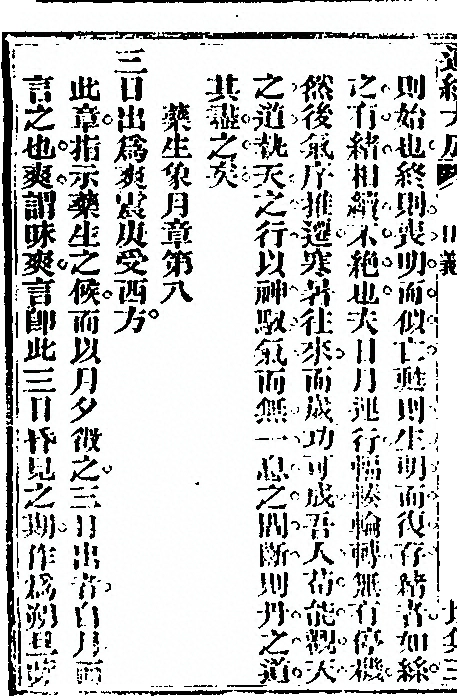 則始也終則喪明而似亡甦則生明而復存緒者如絲
之有緒相續不絕也夫日月運行輻輳輪轉無有停機
然後氣序推遷寒暑往來而成功可成吾人苟能觀天
之道執天之行以神馭氣而無一息之間斷則丹之道
其盡之矣
藥生象月章第八
三日出為爽震庚受西方
此章指示藥生之候而以月夕徵之三日出者白月西
言之也爽謂昧爽言即此三日昏見之期作為朔旦